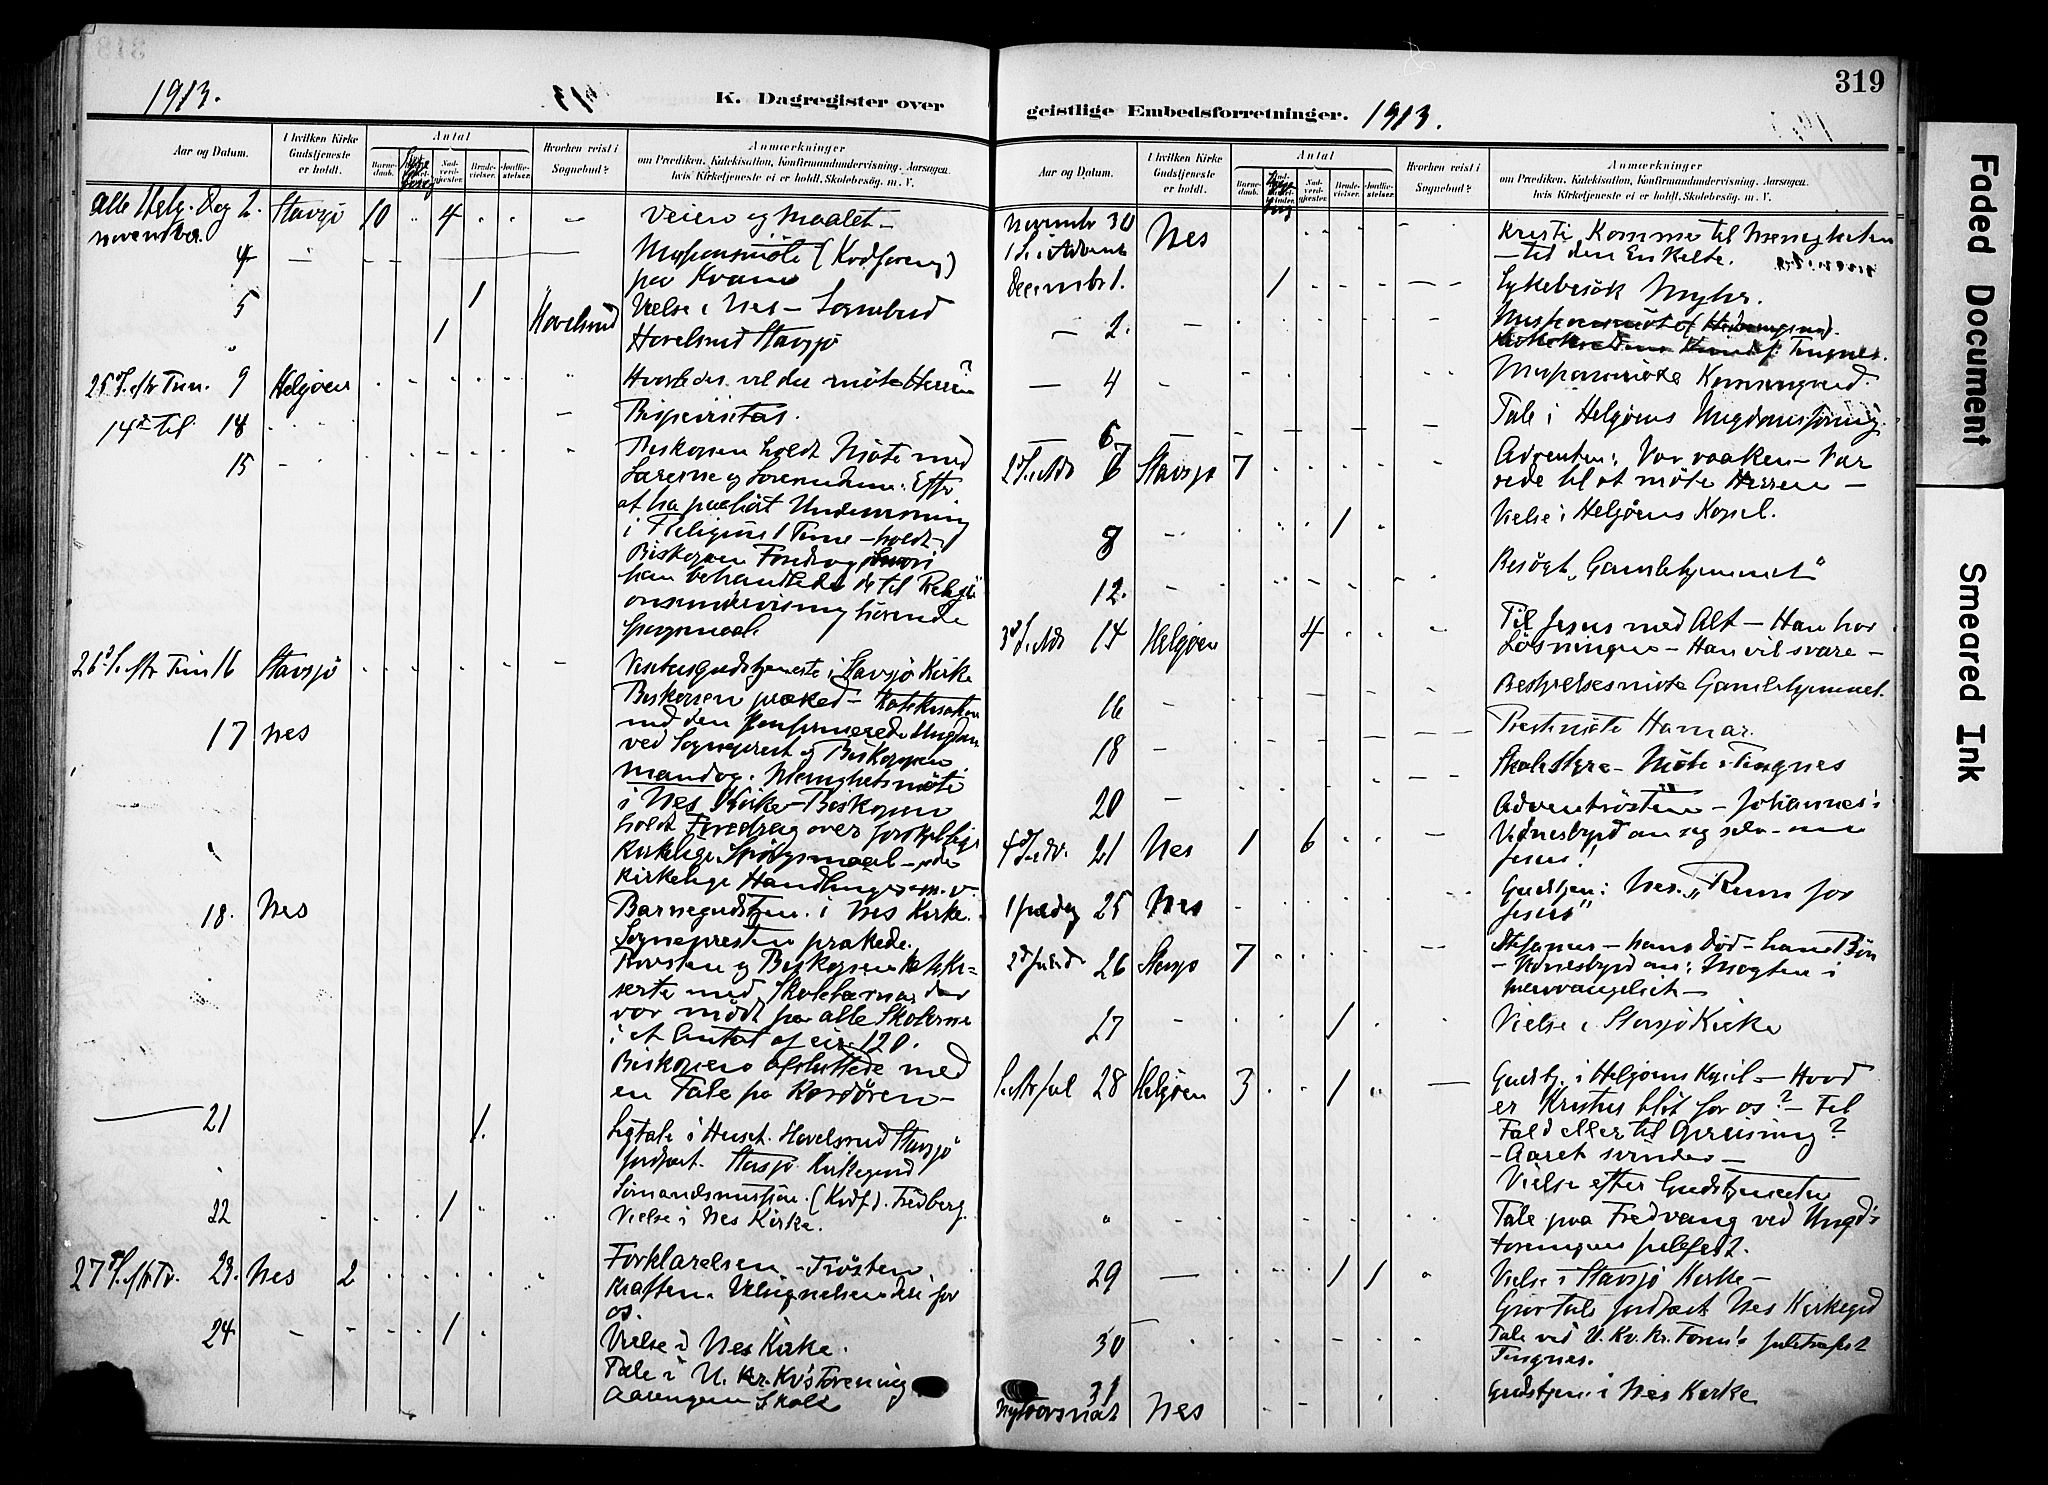 1913.
K. Dagregister over
Aar og Datum.
I hvilken Kirke Gudstjeneste er holdt.
Antal
Barnedaab.
Nadverdgjester.
Brudevielser.
Jordfæstelser.
Hvorhen reist i Sognebud?
Anmærkninger
om Prædiken, Katekisation, Konfirmandundervisning, Aarsagen,
hvis Kirketjeneste ei er holdt, Skolebesøg m. V.
Alle Helg. Dag 2. Stavsjö 10 4 Veien og Maalet -
november
4 Missionsmöte (Kvdforening)
paa Kvame
5 1 Vielse i Nes - Sognebud
1 Hovelsrud Hovelsrud Stavsjö
25 S. eftr Trin. 9 Helgøen Hvorledes vil du möte Herren
14de til 18 Bispevisitas.
15 Biskopen holdt Möte med
Lærerne og Lærerinderne. Efter
at ha paahört Undervisning
i Religion 1 Time - holdt
Biskopen Foredrag hvori
han behandlede de til Religi
onsundervisning hörende
Spørgsmaal.
26 S. eftr Trin 16 Stavsjö Visitasgudstjeneste i Stavsjö Kirke
Biskopen præked - Katekisation
med den Konfirmerede Ungdom
ved Sogneprest og Biskopen
17 Nes Mandag. Menighetsmöte
i Nes Kirke - Biskopen
holdt Foredrag over forskjellige
Kirkelige Spörgsmaal - de
kirkelige Handlinger m. v.
18. Nes Barnegudstjen. i Nes Kirke.
Sognepresten prækede.
Provsten og Biskopen kateki-
serte med Skolebarna der
var mödt fra alle Skolerne
i et Antal af cir. 120.
Biskopen afsluttede med
en Tale fra Kordören -
21 1. Ligtale i Huset Hovelsrud Stavsjö
Jordfæst. Stavsjö Kirkegaard
22 1 Sömandsmission. (Kvdf). Fredberg.
Vielse i Nes Kirke.
27 S. eftr Tr. 23. Nes 2 Forklarelsen - Trösten
Kraften. Velsignelsen deri for
os.
24 1 Vielse i Nes Kirke.
Tale i U. Kr. Kv's Forening
Aavangen Skole
319
geistlige Embedsforretninger. 1913.
Aar og Datum.
I hvilken Kirke Gudstjeneste er holdt.
Antal
Barnedaab.
Nadverdgjester.
Brudevielser.
Jordfæstelser.
Hvorhen reist i Sognebud?
Anmærkninger
om Prædiken, Katekisation, Konfirmandundervisning, Aarsagen,
hvis Kirketjeneste ei er holdt, Skolebesøg m. V.
Novembr 30 Nes Kristi Komme til Menigheten
1 S. i Advent - til den Enkelte.
Decembr 1. 1 Sykebesök Myhr.
2. Missionsmöte Tingnes.
4 Missionsmöte
6 Tale i Helgøens Ungdomsforening.
2 S. i Adv 7 Stavsjö 7 Adventen: Vær vaaken - Vær
rede til at möte Herren -
8 1 Vielse i Helgöens Kapel.
12. Besögt "Gamlehjemmet"
3 S. Adv 14 Helgøen 4 Til Jesus med Alt - Han har
Lösningen - Han vil svare -
16 Bestyrelsesmöte Gamlehjemmet.
18 Prestemöte Hamar.
20 Skolestyre - Möte i Tingnes
4 S. Adv. 21 Nes 1 6 Adventrösten - Johannes's
Vidnesbyrd om sig selv - om
Jesus!
1 juledag 25 Nes Gudstjen: Nes. "Rum for
Jesus"
2d juled 26 Stavsjö 7 Stefanus - hans Död - hans Bön
- Vidnesbyrd om: Magten i
27 1 Vielse i Stavsjö Kirke
S. eftr Jul 28 Helgøen 3 1 Gudstj. i Helgøens Kapel - Hvad
er Kristus blit for os? - Til
Fald eller til Opreisning?
- Aaret svinder -
Vielse efter Gudstjenesten
" Tale paa Fredvang ved Ungd's
foreningens julefest.
29 1 1 Vielse i Stavsjö Kirke -
Gravtale Jordfæst Nes Kirkegrd
30 Tale ved U. Kv. Kr. Foren's juletræfest
Tingnes.
31 Gudstjen: i Nes Kirke
Nytaarsnat Nes
Faded Document
Smeared Ink